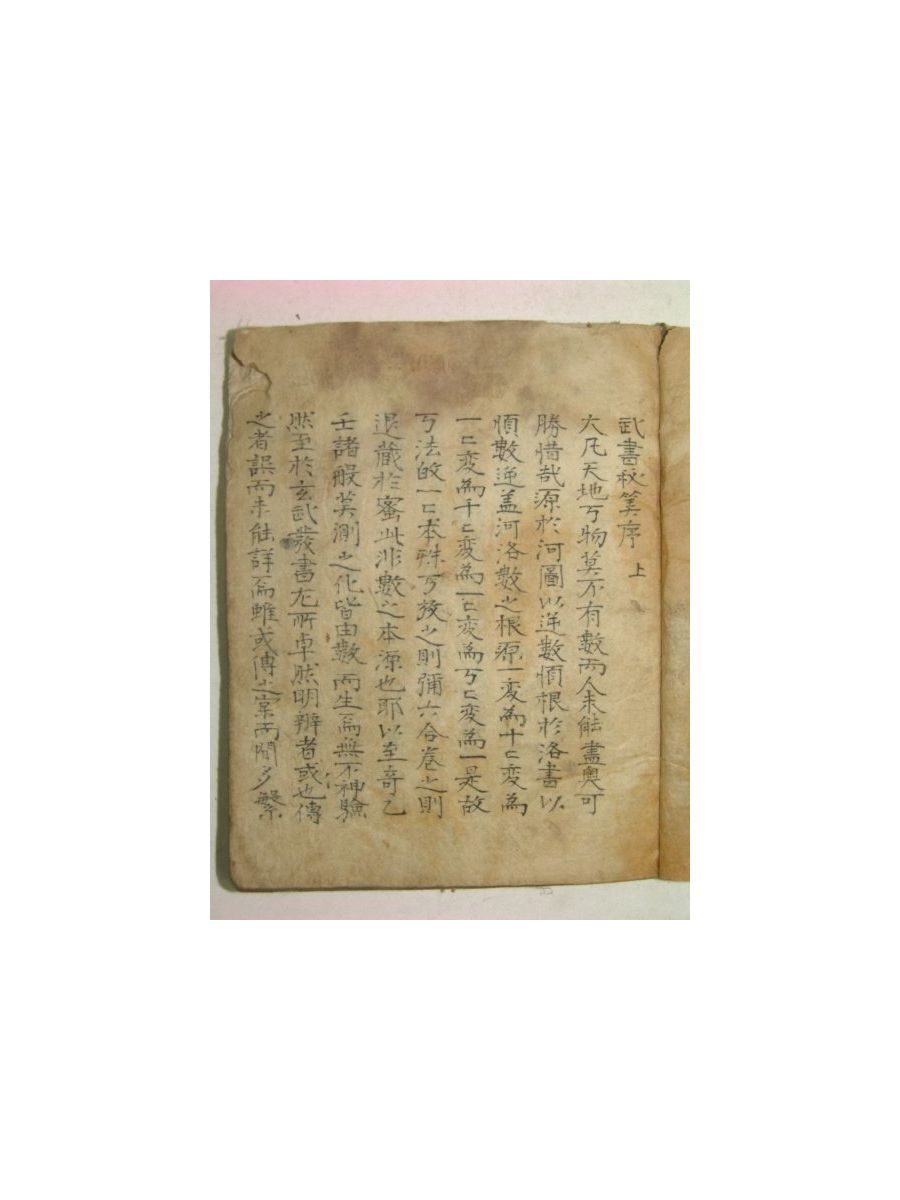 武書秘筭序 上
大凡天地万物莫不有數而人未能盡奧可
勝惜哉源於河圖以逆數愼根於洛書以
愼數逆盖河洛數之根源一変為十匕変為
一匕変為千匕変為一匕変為万匕変為一是故
万法的一匕本殊万放之則彌六合卷之則
退藏於蜜此非數之本源也耶以至奇乙
壬諸般莫測之化皆由數而生焉無不神驗
然至於玄武發書尤所卓然明辨者或也傳
之者誤而未能詳焉雖或傳之業而間多繁